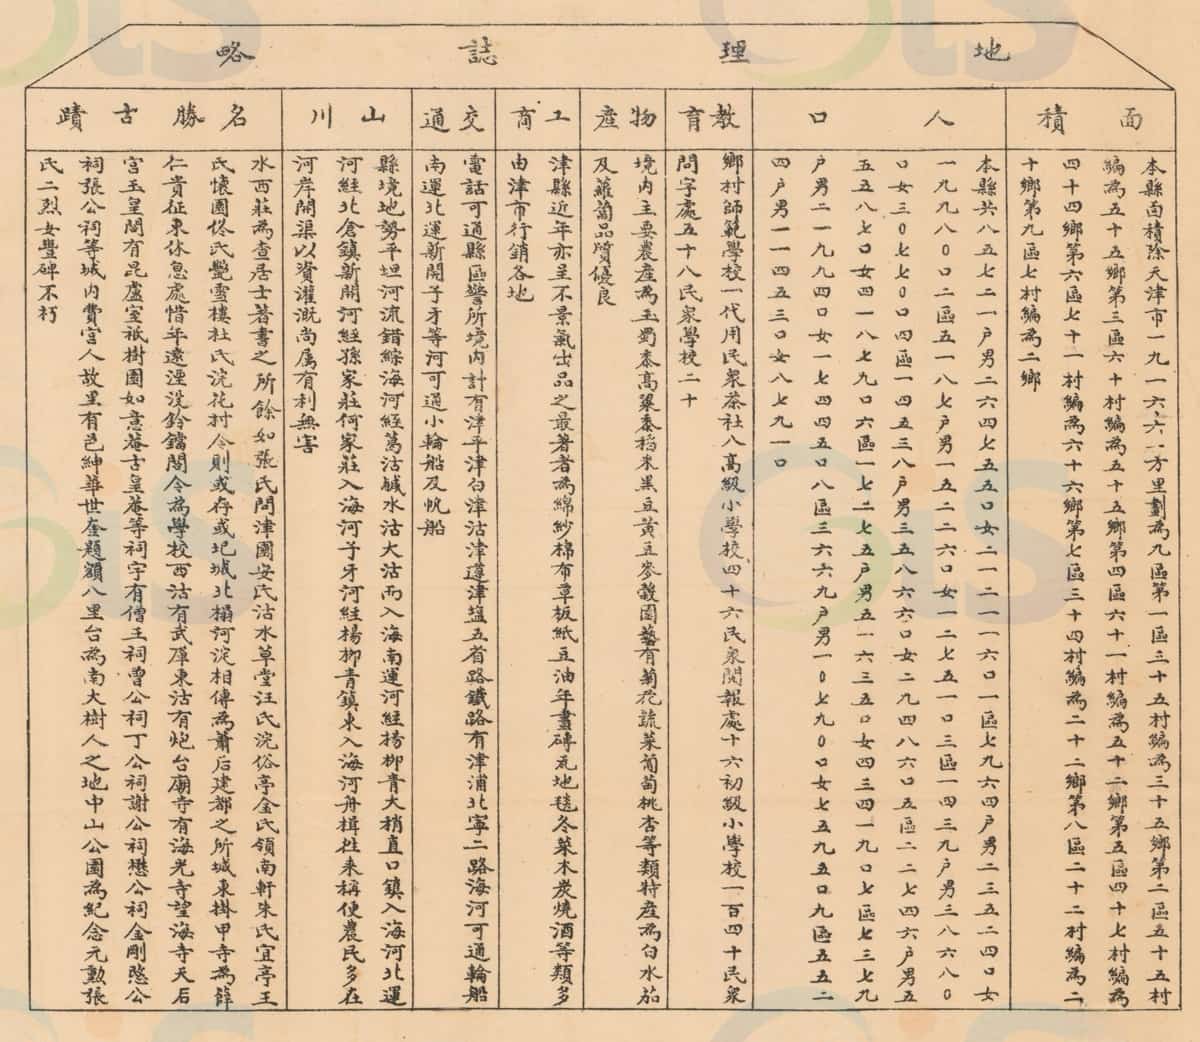 地理誌略
面積
本縣面積除天津市一九一六六一方里劃為九區第一區三十五村編為三十五鄉第二區五十五村
編為五十五鄉第三區六十村編為五十五鄉第四區六十一村編為五十二鄉第五區四十七村編為
四十四鄉第六區七十一村編為六十六鄉第七區三十四村編為二十二鄉第八區二十二村編為二
十鄉第九區七村編為二鄉
人口
本縣共八五七二一戶男二六四七五五口女二一二一一六口一區七九六四戶男二三五二四口女
一九九八〇口二區五一八七戶男一五二二六口女一二七五一口三區一四三九戶男三八六八〇
口女三〇七七〇口四區一四五三八戶男三五八六六口女二九四八六口五區二二七四六戶男五
五五八七口女四一八七九口六區一七二七五戶男五一六三五口女四三四一九口七區七三七九
戶男二一九九四口女一七四四五口八區三六六九戶男一〇七九〇口女七五九五口九區五五二
四戶男一一四五三口女八七九一口
教育
鄉村師範學校一代用民衆茶社八高級小學校四十六民衆閱報處十六初級小學校一百四十民衆
問字處五十八民衆學校二十
物產
境內主要農產為玉蜀黍高粱黍稻米黑豆黃豆麥穀園藝有菊花蔬菜葡萄桃杏等類特產為白水茄
及蘿蔔品質優良
工商
津縣近年亦呈不景氣出品之最著者為綿紗棉布草板紙豆油年畫磚瓦地毯冬菜木炭燒酒等類多
由津市行銷各地
交通
電話可通縣區警所境內計有津平津白津沽津遵津鹽五省路鐵路有津浦北寧二路海河可通輪船
南運北運新開子牙等河可通小輪船及帆船
山川
縣境地勢平坦河流錯綜海河經葛沽鹹水沽大沽而入海南運河經楊柳青大稍直口鎮入海河北運
河經北倉鎮新開河經孫家莊何家莊入海河子牙河經楊柳青鎮東入海河舟楫往來稱便農民多在
河岸開渠以資灌溉尚属有利無害
名勝古蹟
水西莊為查居士著書之所餘如張氏問津園安氏沽水草堂汪氏浣俗亭金氏領南軒朱氏宜亭王
氏懷園佟氏艷雪樓杜氏浣花村今則或存或圮城北楊河淀相傳為蕭后建都之所城東掛甲寺為薛
仁貴征東休息處惜年遠湮没鈴鐺閣今為學校西沽有武庫東沽有炮台廟寺有海光寺望海寺天后
宮玉皇閣有毘盧室祇樹園如意菴古皇菴等祠宇有僧王祠曾公祠丁公祠謝公祠懋公祠金剛愍公
祠張公祠等城內費宮人故里有邑紳華世奎題額八里台為南大樹人之地中山公園為紀念元勳張
氏二烈女豐碑不朽